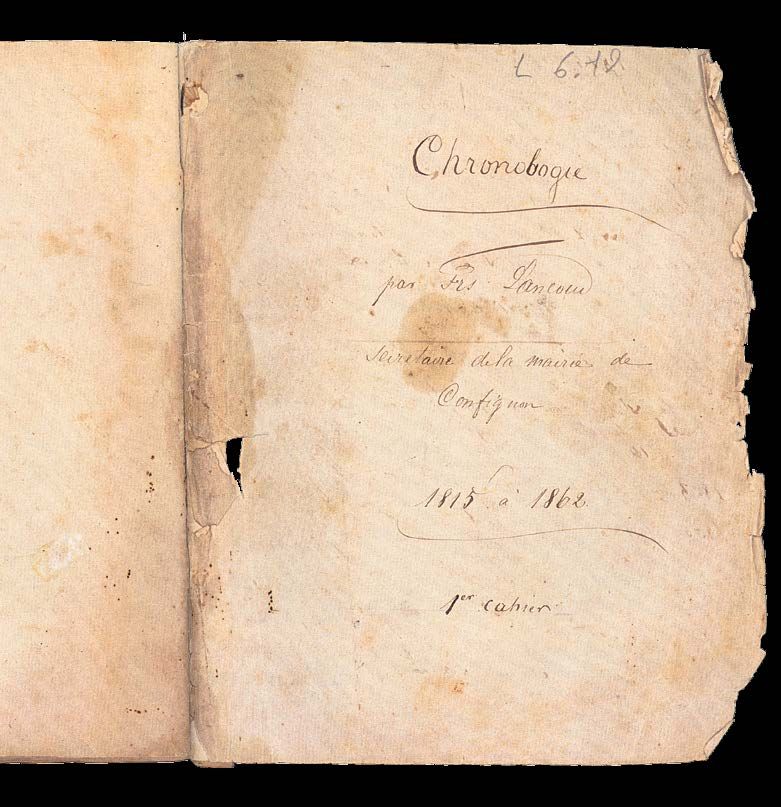 L 6.12
Chronologie
par Frs Lancoud
secretaire de la mairie de
Confignon
1815 à 1862
1er cahier